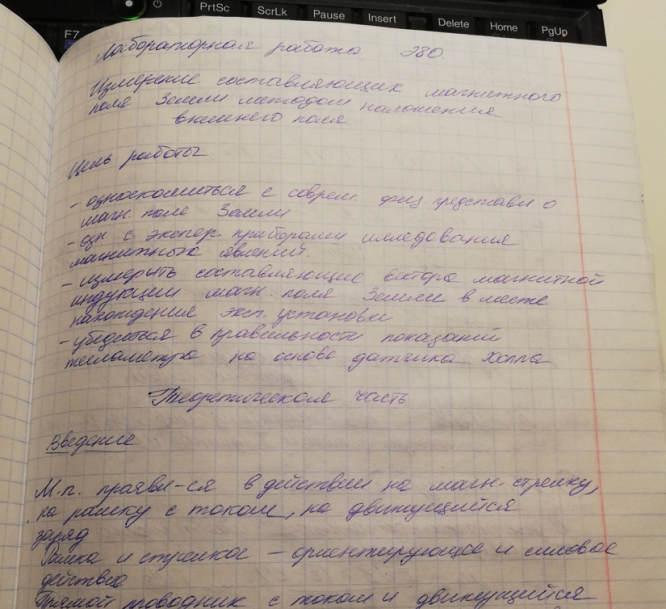 PrtSc
ScrLk
Pause
Insert
Delete
Home
PgUp
F7
Лабораторная работа 280.
Измерение составляющих магнитного
поля Земли методом наложения
внешнего поля
Цель работы
- ознакомиться с соврем. физ представл о
магн поле Земли
- озн с экспер. приборами исследования
магнитных явлений.
- измерить составляющие вектора магнитной
индукции магн. поля Земли в месте
нахождения эксп. установки
- убедиться в правильности показаний
тесламетра на основе датчика Холла
Теоретическая часть
Введение
М.п. прояви-ся в действии на магн. стрелку,
на рамку с током, на движущийся
заряд
Рамка и стрелка – ориентирующее и силовое
действие
Прямой проводник с током и движущийся